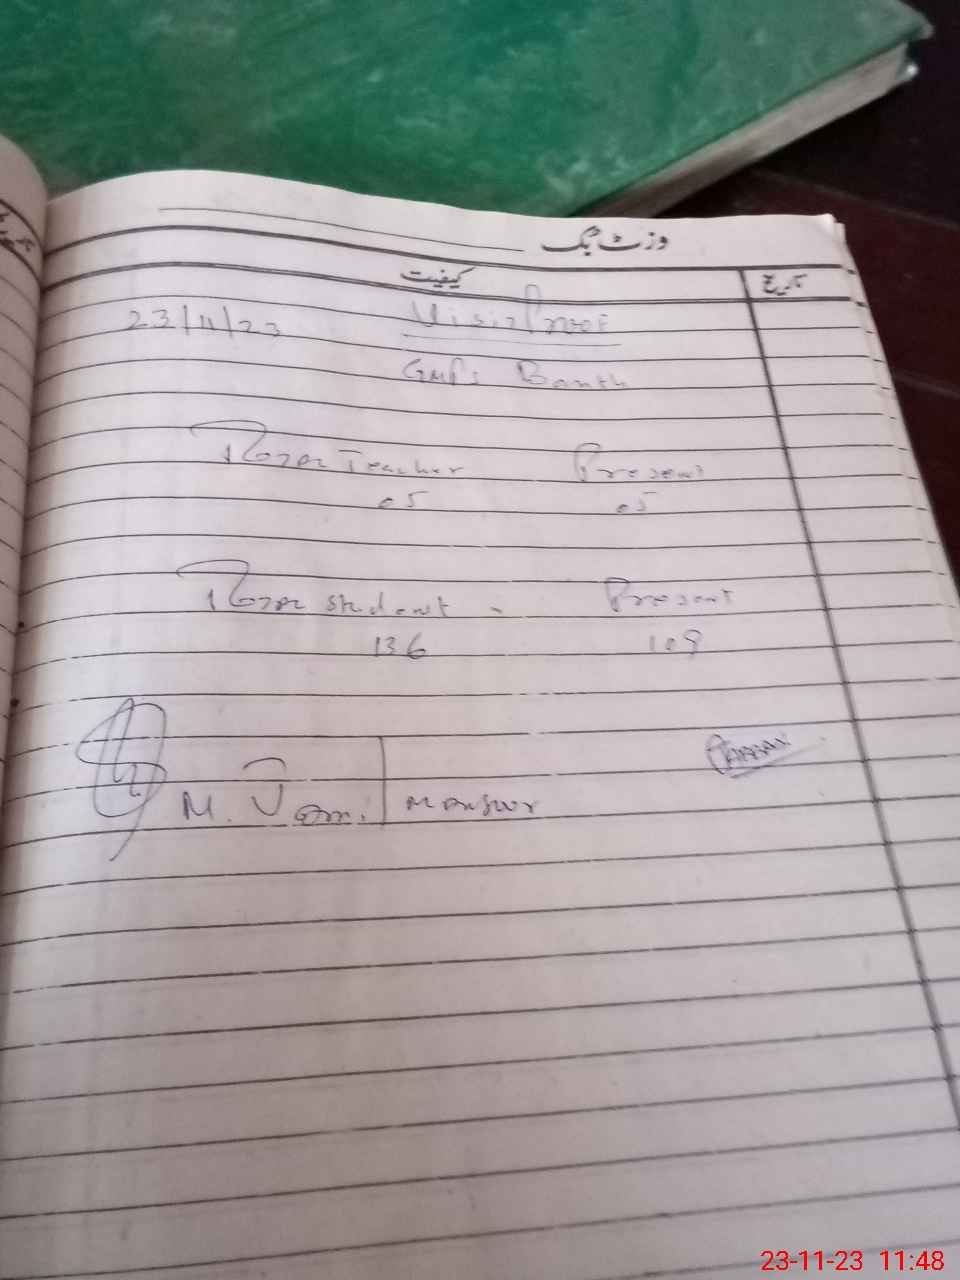 وزٹ بک
کیفیت تاریخ
23/11/23 Visit Proof
GMPS Banth
Total Teacher Present
05 05
Total Student - Present
136 109
M. Jamil Mansur
23-11-23 11:48